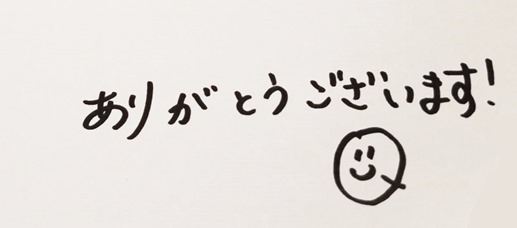 ありがとうございます!